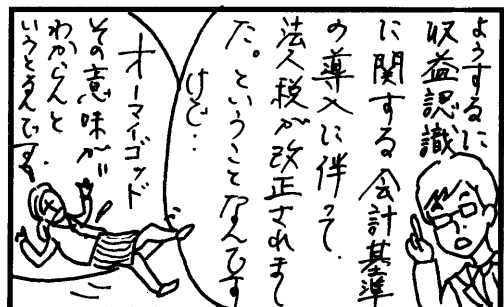 ようするに
収益認識
に関する会計基準
の導入に伴って、
法人税が改正されまし
た。ということなんです
けど‥
オーマイゴッド
その意味が
わからんと
いうとるんです。